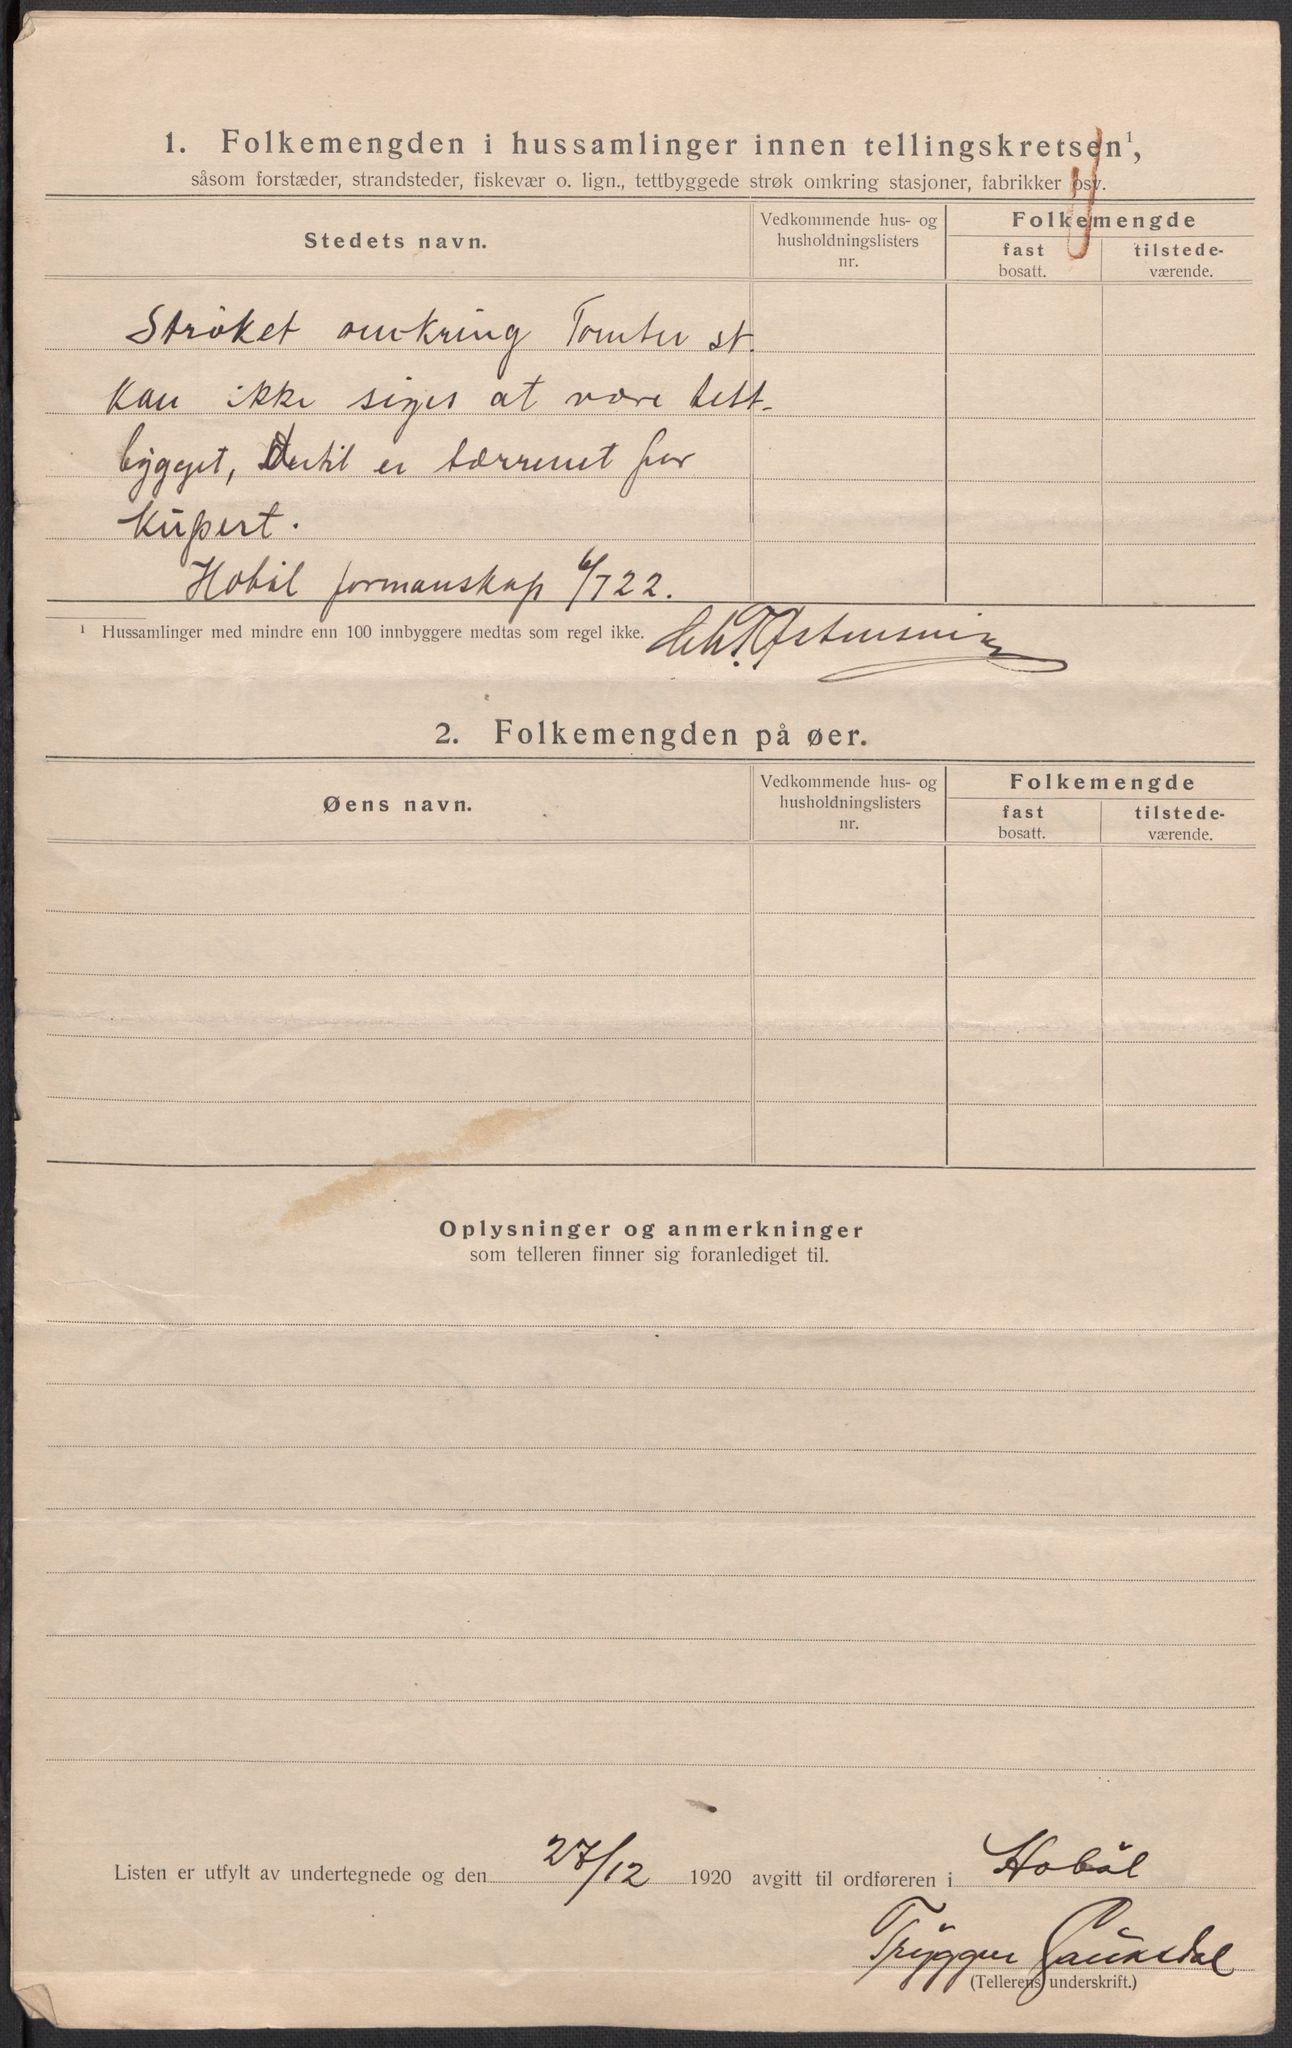 1. Folkemengden i hussamlinger innen tellingskretsen¹,
såsom forstæder, strandsteder, fiskevær o. lign., tettbyggede strøk omkring stasjoner, fabrikker osv.
Stedets navn.
Vedkommende hus- og
husholdningslisters
nr.
Folkemengde
fast
bosatt.
tilstede-
værende.
Strøket omkring Tomter st.
kan ikke siges at være tett-
bygget, Dertil er tærrenet for
kupert.
Hobøl formanskap 6/7 22.
¹ Hussamlinger med mindre enn 100 innbyggere medtas som regel ikke.
2. Folkemengden på øer.
Øens navn.
Vedkommende hus- og
husholdningslisters
nr.
Folkemengde
fast
bosatt.
tilstede-
værende.
Oplysninger og anmerkninger
som telleren finner sig foranlediget til.
Listen er utfylt av undertegnede og den 27/12 1920 avgitt til ordføreren i Hobøl
Trygve Gauksdal
(Tellerens underskrift.)